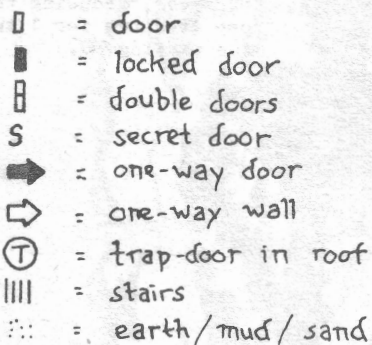 = door
= locked door
= double doors
S = secret door
= one-way door
= one-way wall
T = trap-door in roof
= stairs
= earth/mud/sand